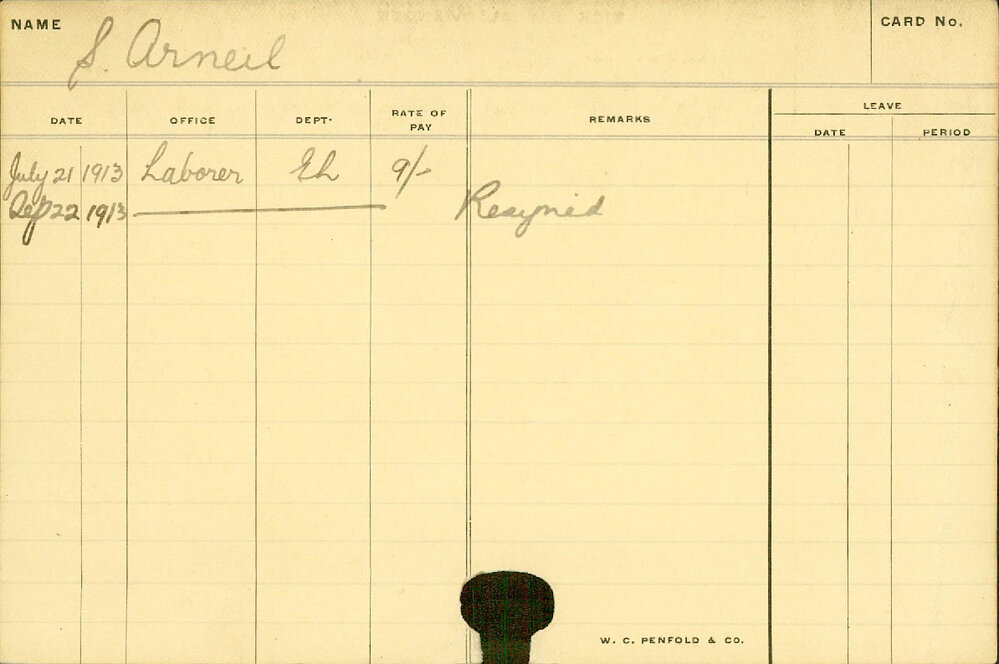 NAME
S. Arneil
CARD No.
DATE OFFICE DEPT. RATE OF PAY REMARKS LEAVE
DATE PERIOD
July 21 1913 Laborer Eh 9/-
Sep 22 1913 Resigned
W. C. PENFOLD & CO.